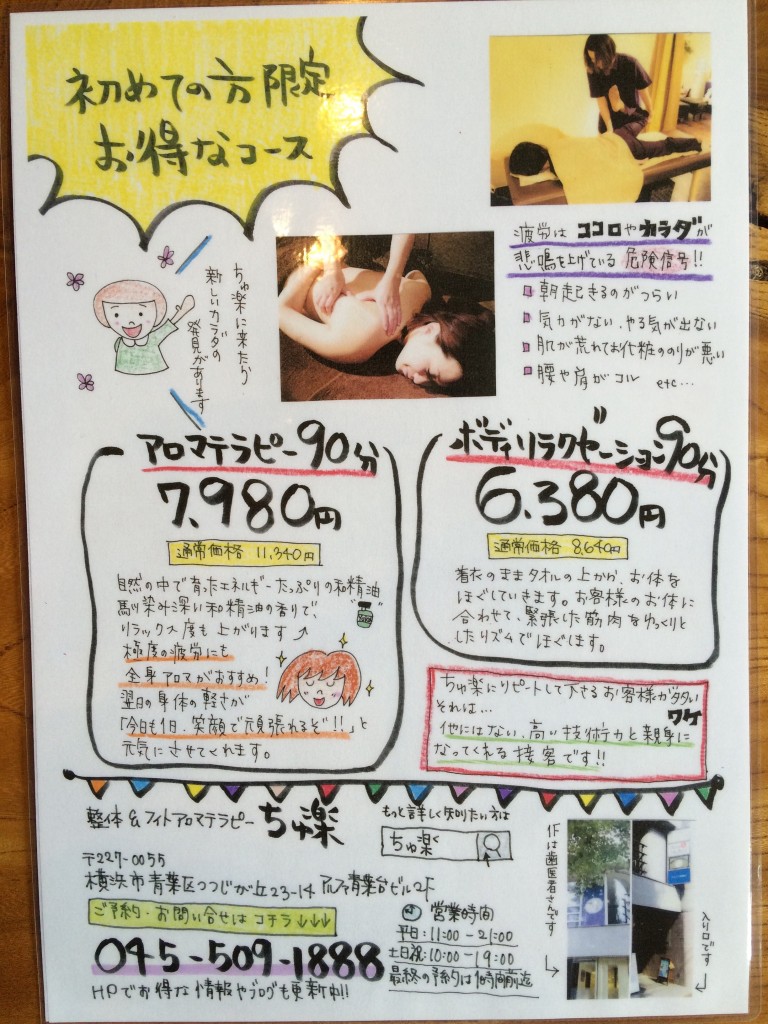 初めての方限定
お得なコース
疲労はココロやカラダが
悲鳴を上げている危険信号!!
朝起きるのがつらい
気力がない、やる気が出ない
肌が荒れてお化粧ののりが悪い
腰や肩がコル etc…
ちゅ楽に来たから
新しいカラダの
発見があります
アロマテラピー90分
7.980円
通常価格 11,340円
自然の中で育ったエネルギーたっぷりの和精油
馴染み深い和精油の香りで、
リラックス度も上がります
極度の疲労にも
全身アロマがおすすめ!
翌日の身体の軽さが
「今日も1日、笑顔で頑張れるぞ!!」と
元気にさせてくれます。
ボディリラクゼーション90分
6.380円
通常価格 8,640円
着衣のままタオルの上から、お体を
ほぐしていきます。お客様のお体に
合わせて、緊張した筋肉をゆっくりと
したリズムでほぐします。
ちゅ楽にリピートして下さるお客様が多いワケ
それは…
他にはない、高い技術力と親身に
なってくれる接客です!!
整体&フィトアロマテラピー ちゅ楽
〒227-0055
横浜市青葉区つつじが丘23-14 アルファ青葉台ビル2F
ご予約・お問い合せは コチラ↓↓↓
045-509-1888
HPでお得な情報やブログも更新中!!
もっと詳しく知りたい方は
ちゅ楽
営業時間
平日:11:00-21:00
土日祝:10:00-19:00
最終の予約は1時間前迄
1Fは歯医者さんです
入り口です